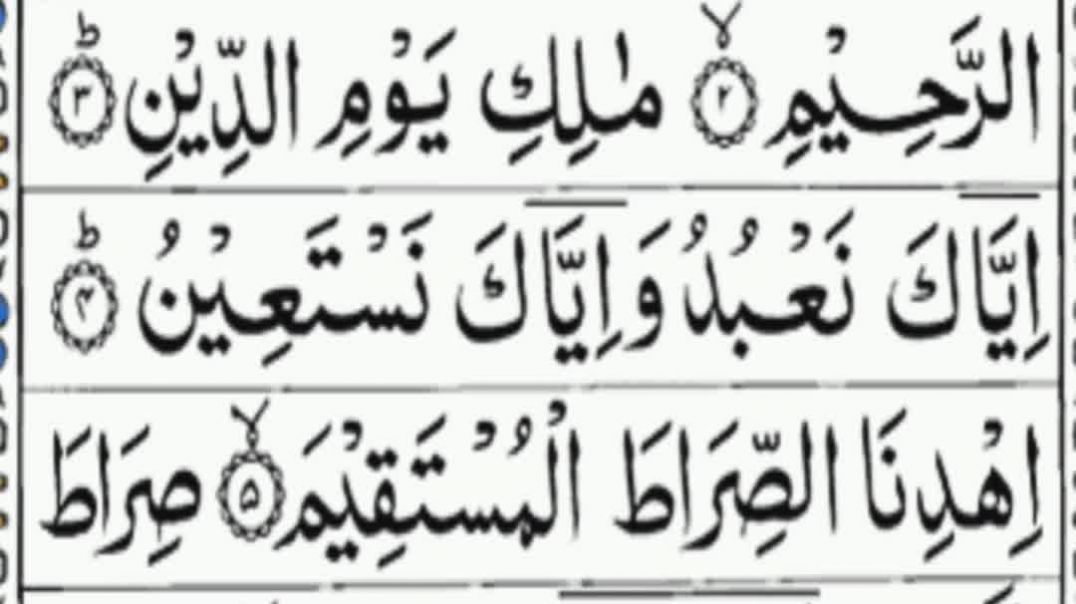 الرَّحِيْمِ ۙ﴿۲﴾ مٰلِكِ يَوْمِ الدِّيْنِ ؕ﴿۳﴾
اِيَّاكَ نَعْبُدُ وَ اِيَّاكَ نَسْتَعِيْنُ ؕ﴿۴﴾
اِهْدِنَا الصِّرَاطَ الْمُسْتَقِيْمَ ۙ﴿۵﴾ صِرَاطَ